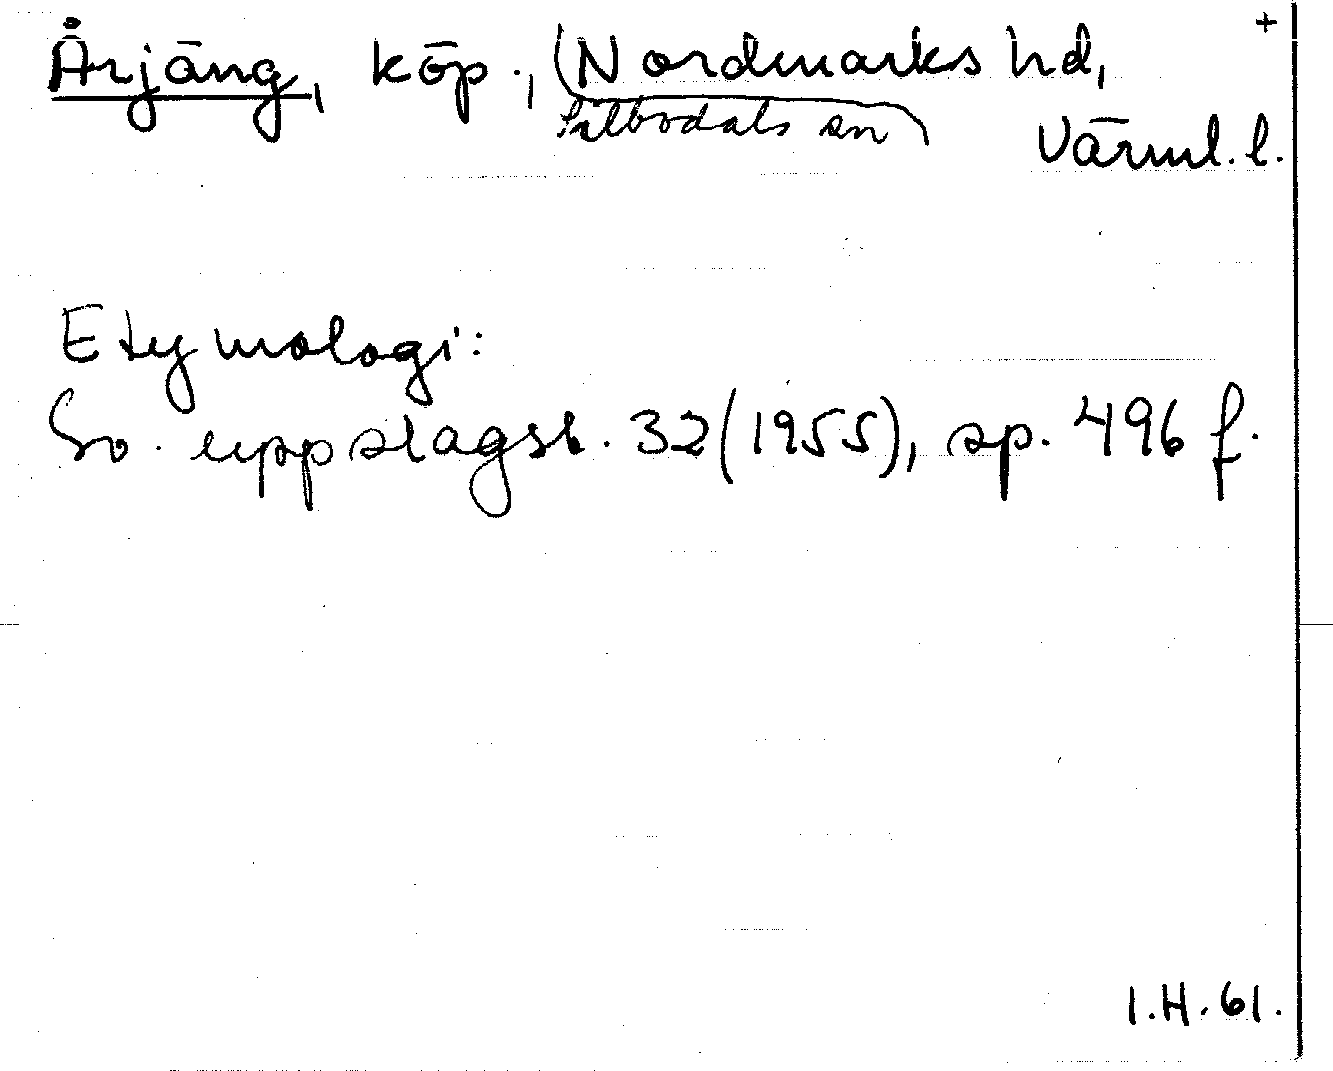 +
Årjäng, köp., Nordmarks hd,
Silbodals sn
Värml. l.
Etymologi:
Sv. uppslagsb. 32 (1955), sp. 496 f.
I.H. 61.